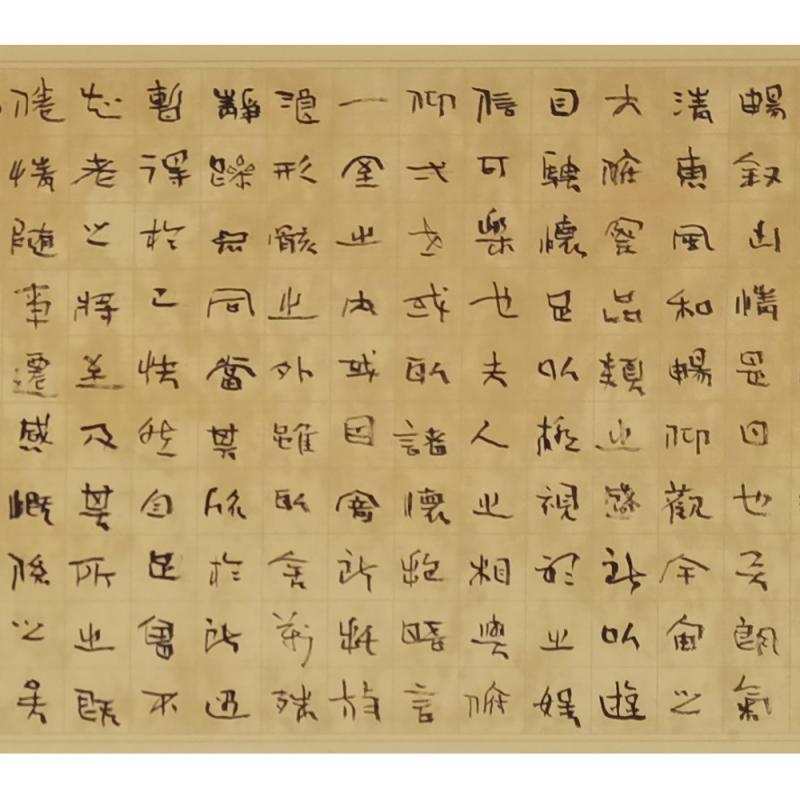 暢叙幽情是日也天朗氣
清惠風和暢仰觀宇宙之
大俯察品類之盛所以遊
目騁懷足以極視聽之娛
信可樂也夫人之相與俯
仰弌世或取諸懷抱晤言
一室之內或因寄所託放
浪形骸之外雖取舍萬殊
靜躁不同當其欣於所遇
暫得於己快然自足曾不
知老之將至及其所之既
倦情隨事遷感慨係之矣